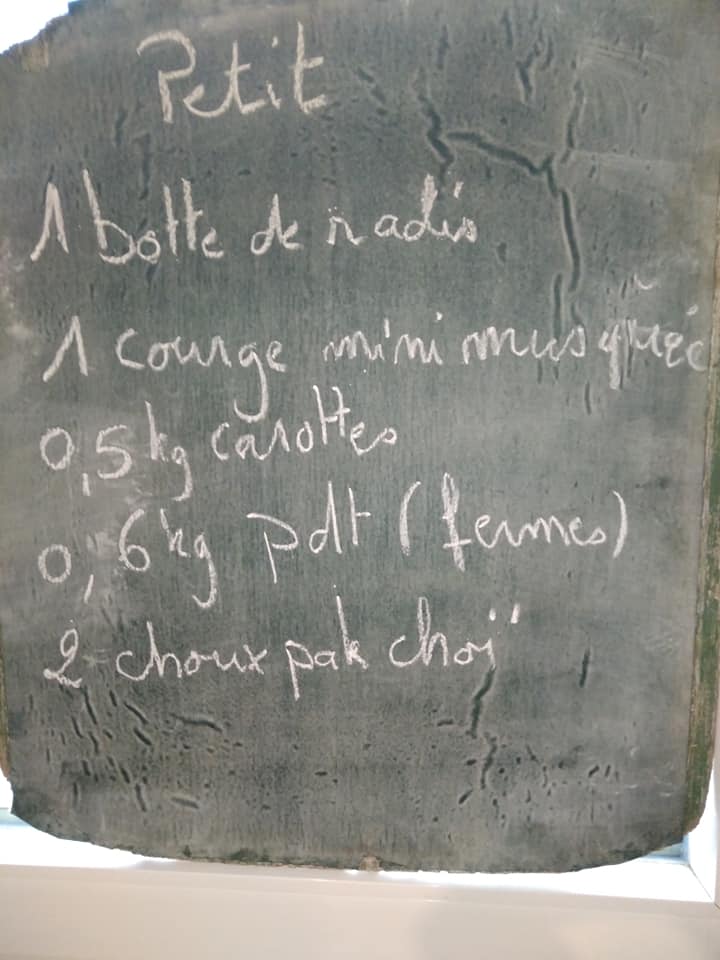 Petit
1 botte de radis
1 courge mini musquée
0,5 kg carottes
0,6 kg pdt (fermes)
2 choux pak choï